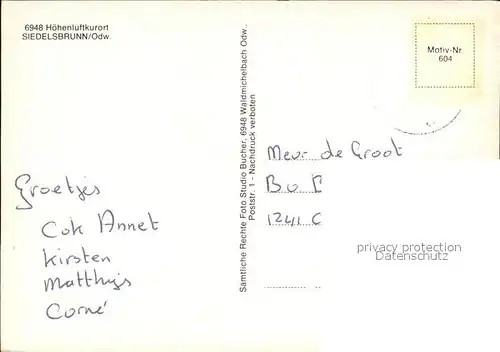 6948 Höhenluftkurort
SIEDELSBRUNN/Odw.
Groetjes
Cok Annet
Kirsten
Matthijs
Corné
Sämtliche Rechte Foto Studio Bucher, 6948 Waldmichelbach Odw.,
Poststr. 1 - Nachdruck verboten
Motiv-Nr.
604
Mevr. de Groot
1241 C
privacy protection
Datenschutz